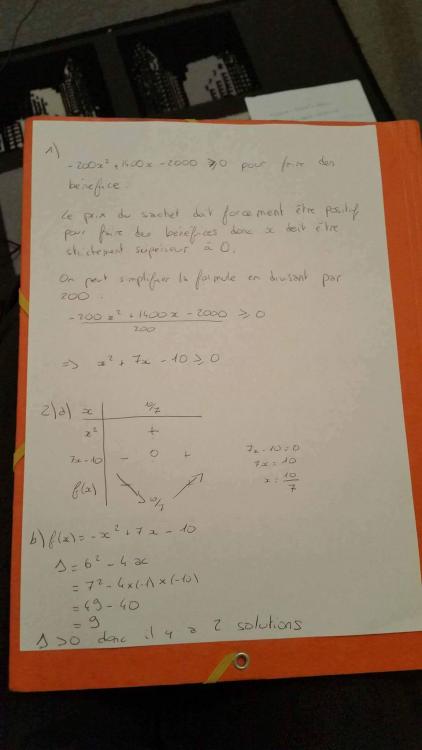 1)
-200x² + 1400x - 2000 ≥ 0 pour faire des
bénéfice.
Le prix du sachet doit forcement être positif
pour faire des bénéfices donc x doit être
strictement supérieur à 0.
On peut simplifier la formule en divisant par
200 :
-200x² + 1400x - 2000 ≥ 0
200
=> x² + 7x - 10 ≥ 0
2)a) x 10/7
x² +
7x-10 - 0 +
f(x) 10/7
7x - 10 = 0
7x = 10
x = 10/7
b) f(x) = -x² + 7x - 10
Δ = b² - 4ac
= 7² - 4×(-1)×(-10)
= 49 - 40
= 9
Δ > 0 donc il y a 2 solutions